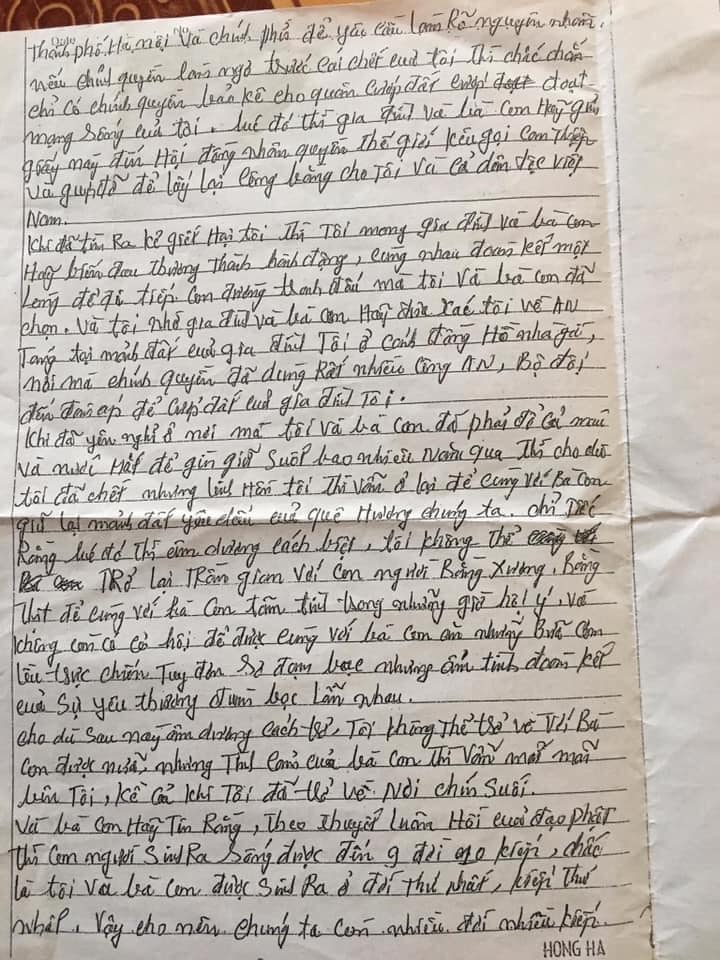 Thành phố Hà nội và chính phủ để yêu cầu làm Rõ nguyên nhân.
nếu chính quyền làm ngơ trước cái chết của tôi Thì chắc chắn
chỉ có chính quyền bảo kê cho quân cướp đất cướp đoạt
mạng sống của tôi. lúc đó thì gia đình và bà con Hãy gửi
giấy này đến Hội đồng nhân quyền thế giới kêu gọi can thiệp
và giúp đỡ để lấy lại công bằng cho Tôi và cả dân tộc việt
Nam.
Khi đã tìm Ra kẻ giết Hại tôi thì Tôi mong gia đình và bà con
Hãy biến đau thương Thành hành động, cùng nhau đoàn kết một
lòng để đi tiếp con đường tranh đấu mà tôi và bà con đã
chọn. Và tôi nhờ gia đình và bà con Hãy đưa xác tôi về AN
Táng tại mảnh đất của gia đình Tôi ở cánh đồng Hồ nhà gá,
nơi mà chính quyền đã dùng Rất nhiều công AN, Bộ đội
đến đàn áp để cướp đất của gia đình Tôi.
Khi đã yên nghỉ ở nơi mà tôi và bà con đã phải đổ cả máu
và nước Mắt để gìn giữ suốt bao nhiêu Năm qua Thì cho dù
tôi đã chết nhưng linh Hồn tôi Thì vẫn ở lại để cùng với Bà con
giữ lại mảnh đất yêu dấu của quê Hương chúng ta. chỉ Tiếc
Rằng lúc đó thì âm dương cách biệt, tôi không thể
TRở lại TRần gian với con người Bằng Xương, Bằng
Thịt để cùng với bà con tâm tình trong những giờ hội ý, và
không còn có cơ hội để được cùng với bà con ăn những Bữa cơm
lều trực chiến Tuy đơn sơ đạm bạc nhưng ấm tình đoàn kết
của sự yêu thương đùm bọc Lẫn nhau.
cho dù sau này âm dương cách trở, Tôi không Thể trở về với Bà
con được nữa, nhưng Tình cảm của bà con Thì vẫn mãi mãi
bên Tôi, kể cả khi Tôi đã trở về Nơi chín suối.
Và bà con Hãy Tin Rằng, Theo Thuyết luân Hồi của đạo phật
thì con người Sinh Ra sống được đến 9 đời 10 kiếp, chắc
là tôi và bà con được Sinh Ra ở đời thứ nhất, kiếp thứ
nhất. vậy cho nên chúng ta còn nhiều đời nhiều kiếp.
HONG HA